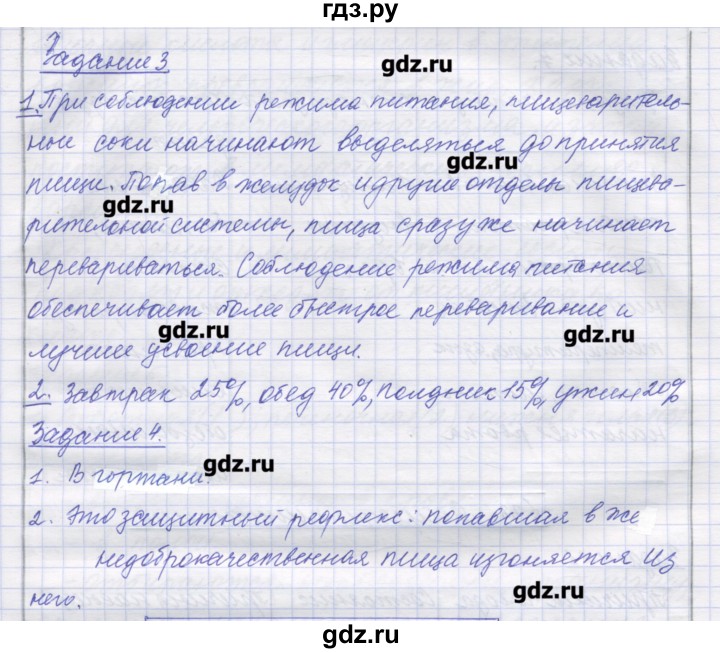 гдз.ру
Задание 3
gdz.ru
1. При соблюдении режима питания, пищеваритель-
ные соки начинают выделяться до принятия
gdz.ru
пищи. Попав в желудок и другие отделы пищева-
gdz.ru
рительной системы, пища сразу же начинает
перевариваться. Соблюдение режима питания
обеспечивает более быстрое переваривание и
gdz.ru gdz.ru
лучшее усвоение пищи.
2. Завтрак 25%, обед 40%, полдник 15%, ужин 20%
Задание 4.
gdz.ru
1. В гортани.
2. Это защитный рефлекс: попавшая в же
недоброкачественная пища изгоняется из
него.
gdz.ru
gdz.ru